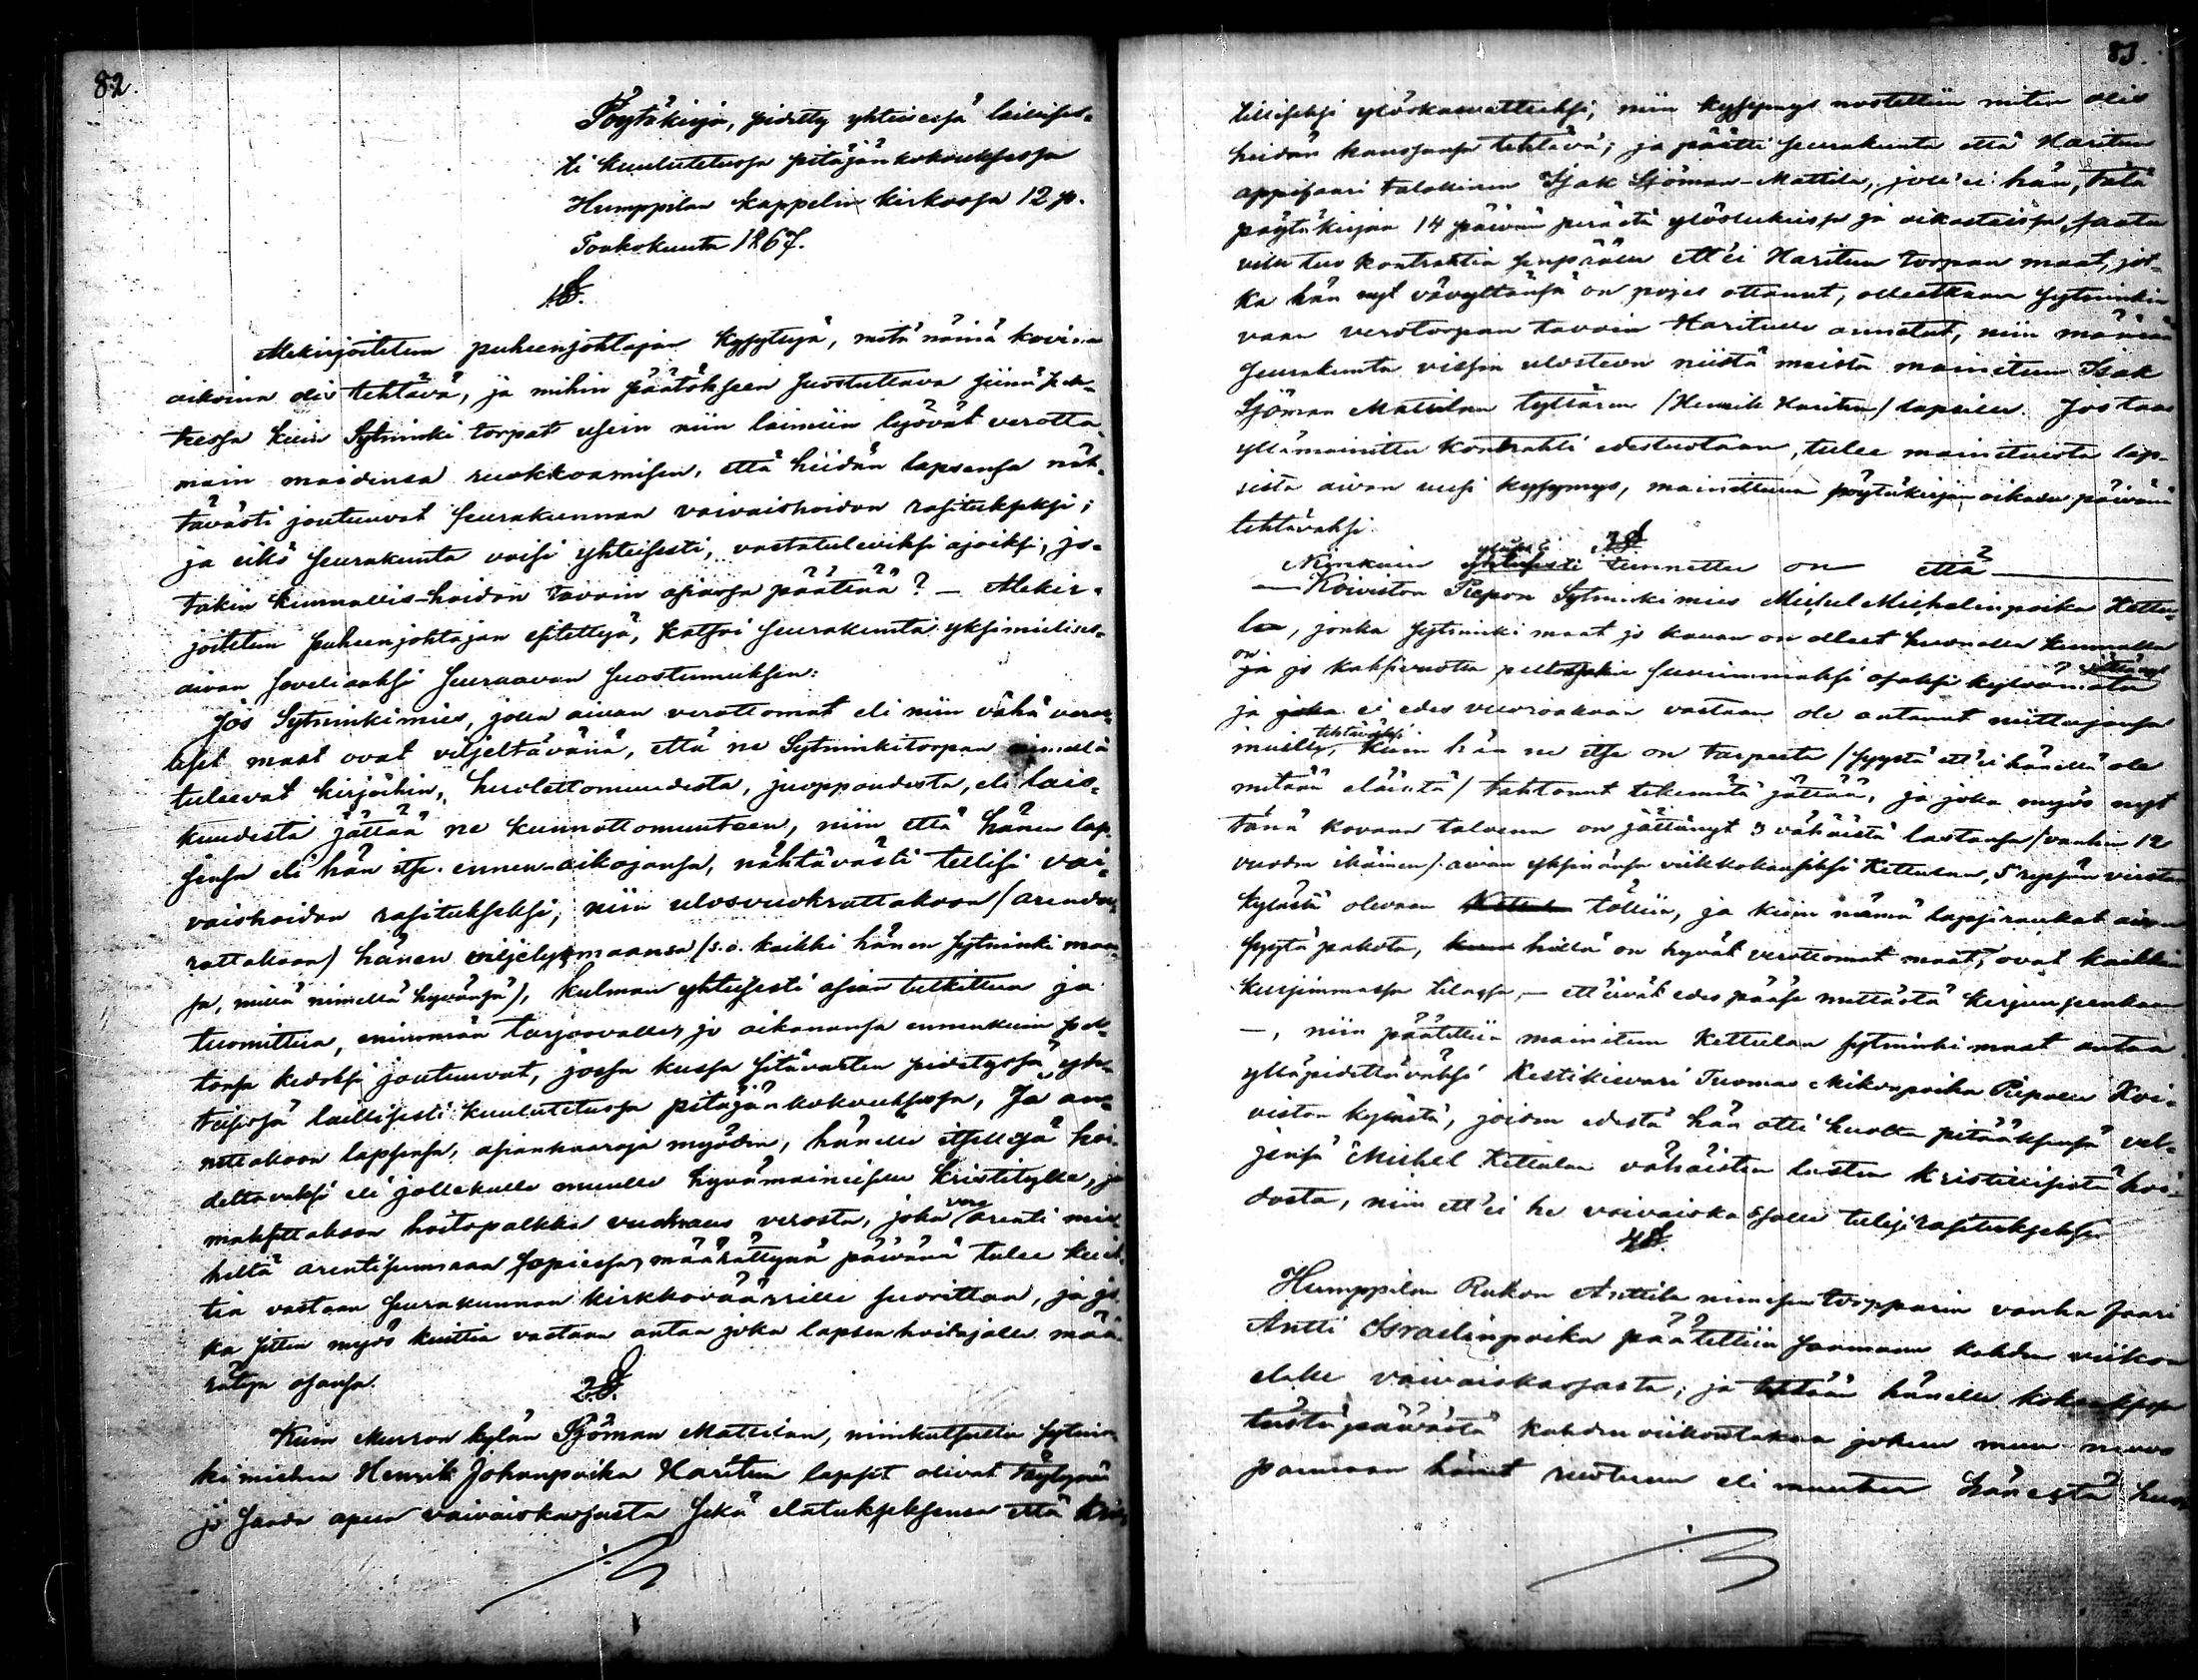 82.
Pöytäkirja, pidetty yhteisessä laillises-
ti kuulutetussa pitäjänkokouksessa
Humppilan kappelin kirkossa 12 p.
Toukokuuta 1867.
1 §.
Allekirjoitetun puheenjohtajan kysyttyä, mitä näinä kovina
aikoina olis tehtävä, ja mihin päätökseen suostuttava siinä ...
kuin Sytninki torpat usein niin laimiin lyövät verotto-
main maidensa ruokkoamisen, että heidän lapsensa näh-
tävästi joutuvat seurakunnan vaivaishoidon rasitukseksi;
ja eikö seurakunta voisi yhteisesti, vastatuleviksi ajoiksi, jo-
takin kunnallis-hoidon tavoin asiassa päättää? – Allekir-
joitetun puheenjohtajan esitettyä, katsoi seurakunta yksimielises-
aivan soveliaaksi seuraavan suostumuksen:
Jos Sytninkimies, jolla aivan verottomat eli niin vähä verol-
liset maat ovat viljeltävänä, että ne Sytninkitorpan nimellä
tulevat kirjoihin, huolettomuudesta, juoppoudesta, eli lais-
kuudesta jättää ne kunnottomuuteen, niin että hänen lap-
sensa eli hän itse ennen-aikojansa, nähtävästi tulisi vai-
vaishoidon rasitukseksi, niin ulosvuokrattakoon (arenda-
rattakoon) hänen viljelysmaansa (s.o. kaikki hänen sytninki maan-
sa, millä nimellä hyvänsä), kulman yhteisesti asian tutkittua ja
tuomittua, enimmän tarjoovalle, jo aikanansa ennenkuin pel-
tonsa kedoksi joutuvat, jossa kussa sitävarten pidetyssä yh-
teisessä laillisesti kuulutetussa pitäjänkokouksessa, Ja an-
nettakoon lapsensa, asianhaaroja myöden, hänelle itsellensä hoi-
dettavaksi eli jollekulle muulle hyvämaineiselle kristitylle, ja
maksettakoon hoitopalkka vuokraus verosta, joka arenti mie-
heltä arentisumman sopiessa määrättynä päivänä tulee kuit-
tia vastaan seurakunnan kirkkoväärtille suorittaa, ja jo-
ka sitten myös kuittia vastaan antaa joka lapsen hoitajalle mää-
rätyn osansa.
2 §.
Kuin Murron kylän Sjöman Mattilan, niinkutsutta sytnin-
ki miehen Henrik Johanpoika Haritun lapset olivat täytynyt
jo saada apua vaivaiskassasta sekä elatukseksensa että kris-
83.
tillisiksi ylöskasvatteeksi, niin kysymys nostettiin miten olis
heidän kanssansa tehtävä; ja päätti seurakunta että Haritun
appisaari talokinen Isak Sjöman-Mattila, joll'ei hän, tätä
pöytäkirjaa 14 päivän perästä ylöslukeissa ja oikaistaissa, saata
... tuo kontrahtia ... ett'ei Haritun torpan maat, jot-
ka hän nyt vävyltänsä on pojes ottanut, olleetkaan sytninkin
vaan verotorpan tavoin Haritulle annetut, niin määrää
seurakunta vissin ulosteon niistä maista mainitun Isak
Sjöman Mattilan tyttären (Henrik Haritun) lapsille. Jos taas
yllämainittu kontrahti edestuotaan, tulee mainituista lap-
sista aivan uusi kysymys, mainittuna pöytäkirjan oikaisu päivänä
tehtäväksi.
3 §
Niinkuin yleisesti tunnettu on että
– Koiviston Piepon Sytninkimies Michel Michelinpoika Kettu-
la, jonka sytninki maat jo kauan on olleet huonolla kunnolla
on jo kaksivuotta peltojakin suurimmaksi osaksi kylvämätä
ja ei edes vuoroakaan vastaan ole antanut niittujansa
muille tehtäväksi, kuin hän ne itse on tarpeeta (syystä ett'ei hänellä ole
mitään eläintä) tahtonut tekemätä jättää, ja joka myös nyt
tänä kovana talvena on jättänyt 3 vähäistä lastansa (vanhin 12
vuoden ikäinen) aivan yksinänsä viikkokausiksi Kettulan, 5 ... virstaa
kylästä olevaan tölliin, ja kuin nämä lapsiraukat aivan
syytä pakota, heillä on hyvät verottomat maat, ovat kaikkein
kurjimmassa tilassa, – ett'eivät edes pääse mettästä kerjuuseenkaan
–, niin päätettiin mainitun Kettulan sytninki maat antaa
ylläpidettäväksi Kestikievari Tuomas Mikonpoika Piepolle Koi-
viston kylästä, joiden edestä hän otti huolen pitääksensä vel-
jensä Michel Kettulan vähäisten lasten kristillisestä hoi-
dosta, niin ett'ei he vaivaiskassalle tulisi rasitukseksi.
4 §.
Humppilan Rukon Anttila nimisen torpparin vanha saari
Antti Israelinpoika päätettiin saamaan kahden viikon
elake vaivaiskassasta, ja ... hänelle kokouksessa
tästä päivästä kahden viikon takaa johon muu neuvo
parmaan hänet ruotuun eli muuten hänestä huol-